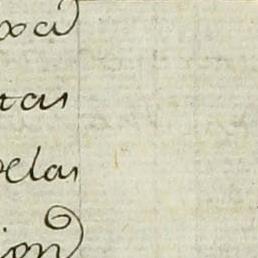 xa
tas
velas
ion